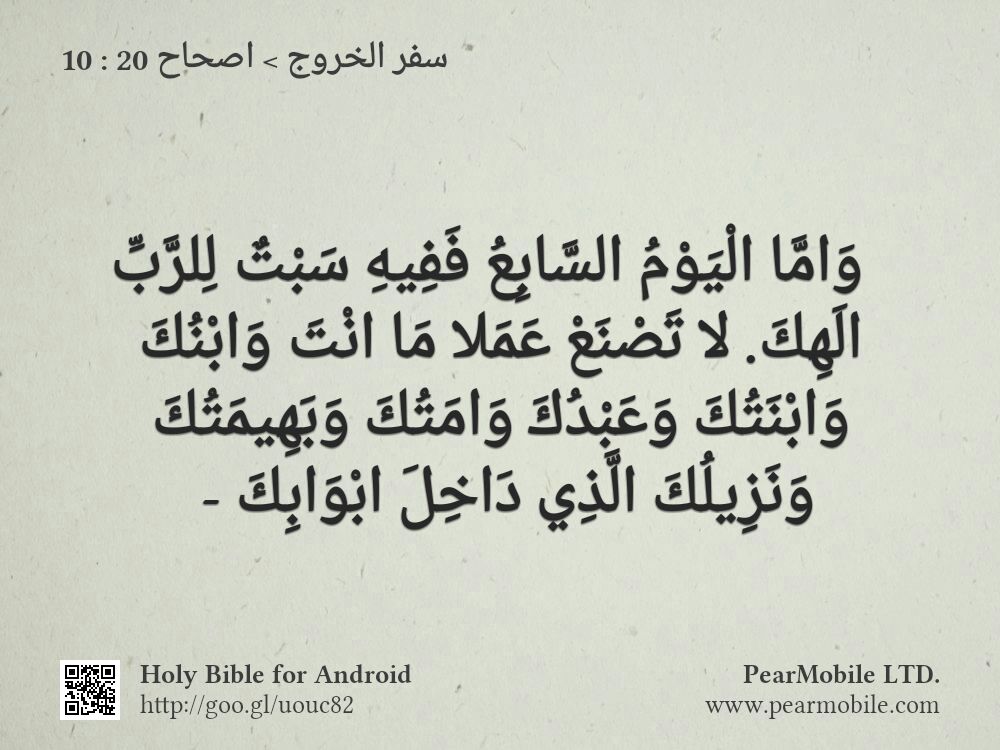 سفر الخروج > اصحاح 20 : 10
وَامَّا الْيَوْمُ السَّابِعُ فَفِيهِ سَبْتٌ لِلرَّبِّ
الَهِكَ. لا تَصْنَعْ عَمَلا مَا انْتَ وَابْنُكَ
وَابْنَتُكَ وَعَبْدُكَ وَامَتُكَ وَبَهِيمَتُكَ
وَنَزِيلُكَ الَّذِي دَاخِلَ ابْوَابِكَ -
Holy Bible for Android
http://goo.gl/uouc82
PearMobile LTD.
www.pearmobile.com